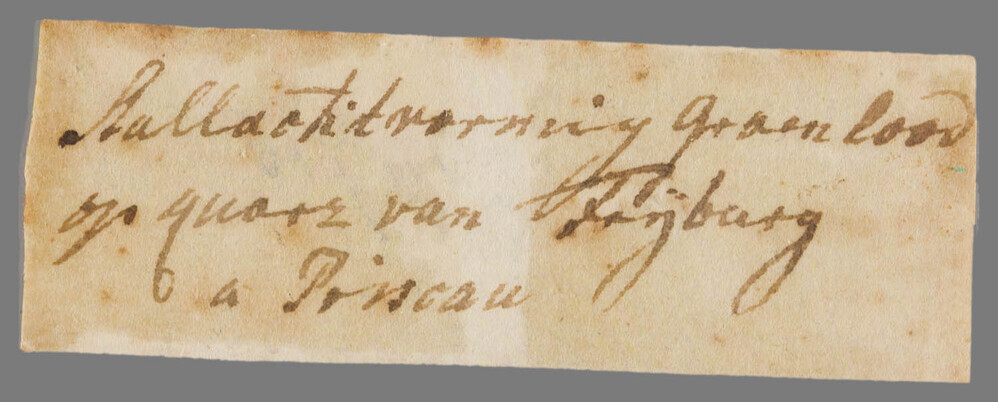 Stallachtitvormig Groen lood
op quarz van Frijburg
a Briscau